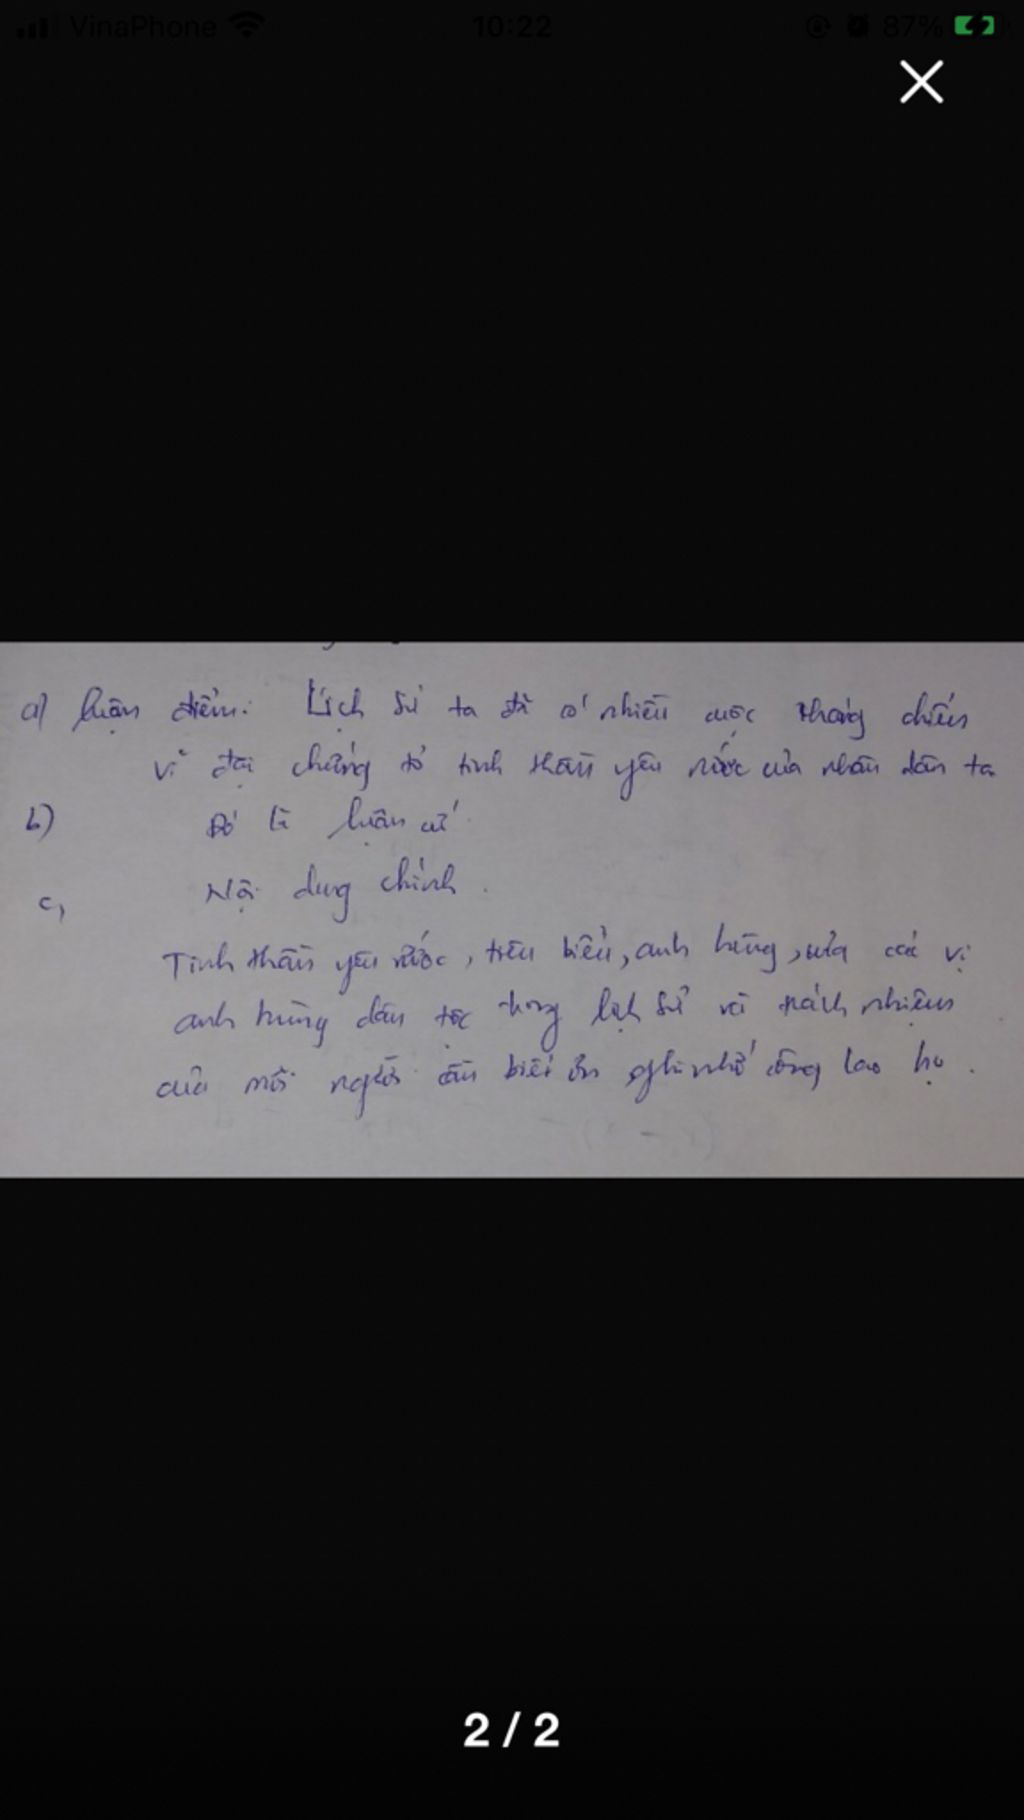 VinaPhone 10:22 87%
a) Luận điểm: Lịch sử ta đã có nhiều cuộc kháng chiến
vĩ đại chứng tỏ tinh thần yêu nước của nhân dân ta
b) Đó là luận cứ
c, Nội dung chính.
Tinh thần yêu nước, tiêu biểu, anh hùng, của các vị
anh hùng dân tộc trong lịch sử và trách nhiệm
của mỗi người cần biết ơn, ghi nhớ công lao họ.
2 / 2